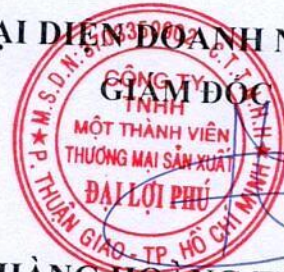 ẠI DIỆN DOANH N
GIÁM ĐỐC
M.S.D.N:
C.T.T.N.H.H
CÔNG TY
TNHH
MỘT THÀNH VIÊN
THƯƠNG MẠI SẢN XUẤT
ĐẠI LỢI PHÚ
P. THUẬN GIAO - TP. HỒ CHÍ MINH